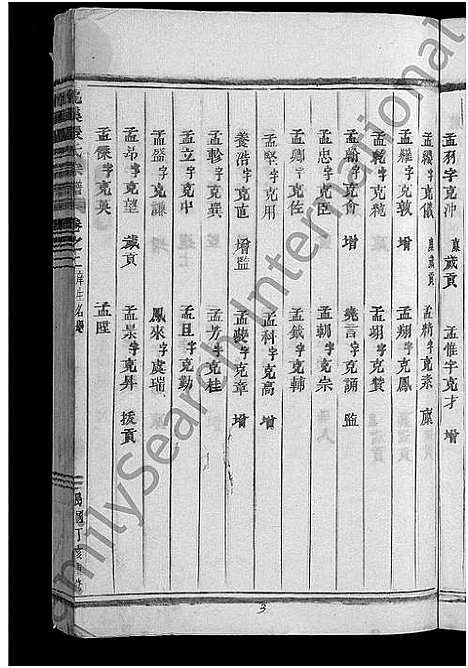 孟羽字克沖 廪歲貢 孟惟字克才 增
孟纓字克儀 廩歲貢 孟精字克素 廪
孟維字克敦 增 孟翔字克鳳
孟乾字克蒞 孟翊字克贊
孟翰字克會 增 堯言字克誦 監
孟忠字克臣 孟朝字克宗
孟卿字克佐 孟鉞字克輔
孟堅字克用 孟科字克高 增
養浩字克直 增監 孟夔字克章 增
孟軫字克巽 孟芳字克桂
孟立字克中 孟旦字克勤
孟盛字克謙 鳳來字虞瑞
孟昂字克望 歲貢 孟景字克昇 拔貢
孟傑字克英 孟陞
氏宗譜 卷之二 庠生名 民國丁亥
FamilySearch International
3